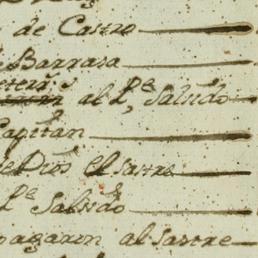 de Castro
Barrasa
al P.e Salsido
Capitan
de Dios el sastre
P.e Salsido
pagaron al sastre